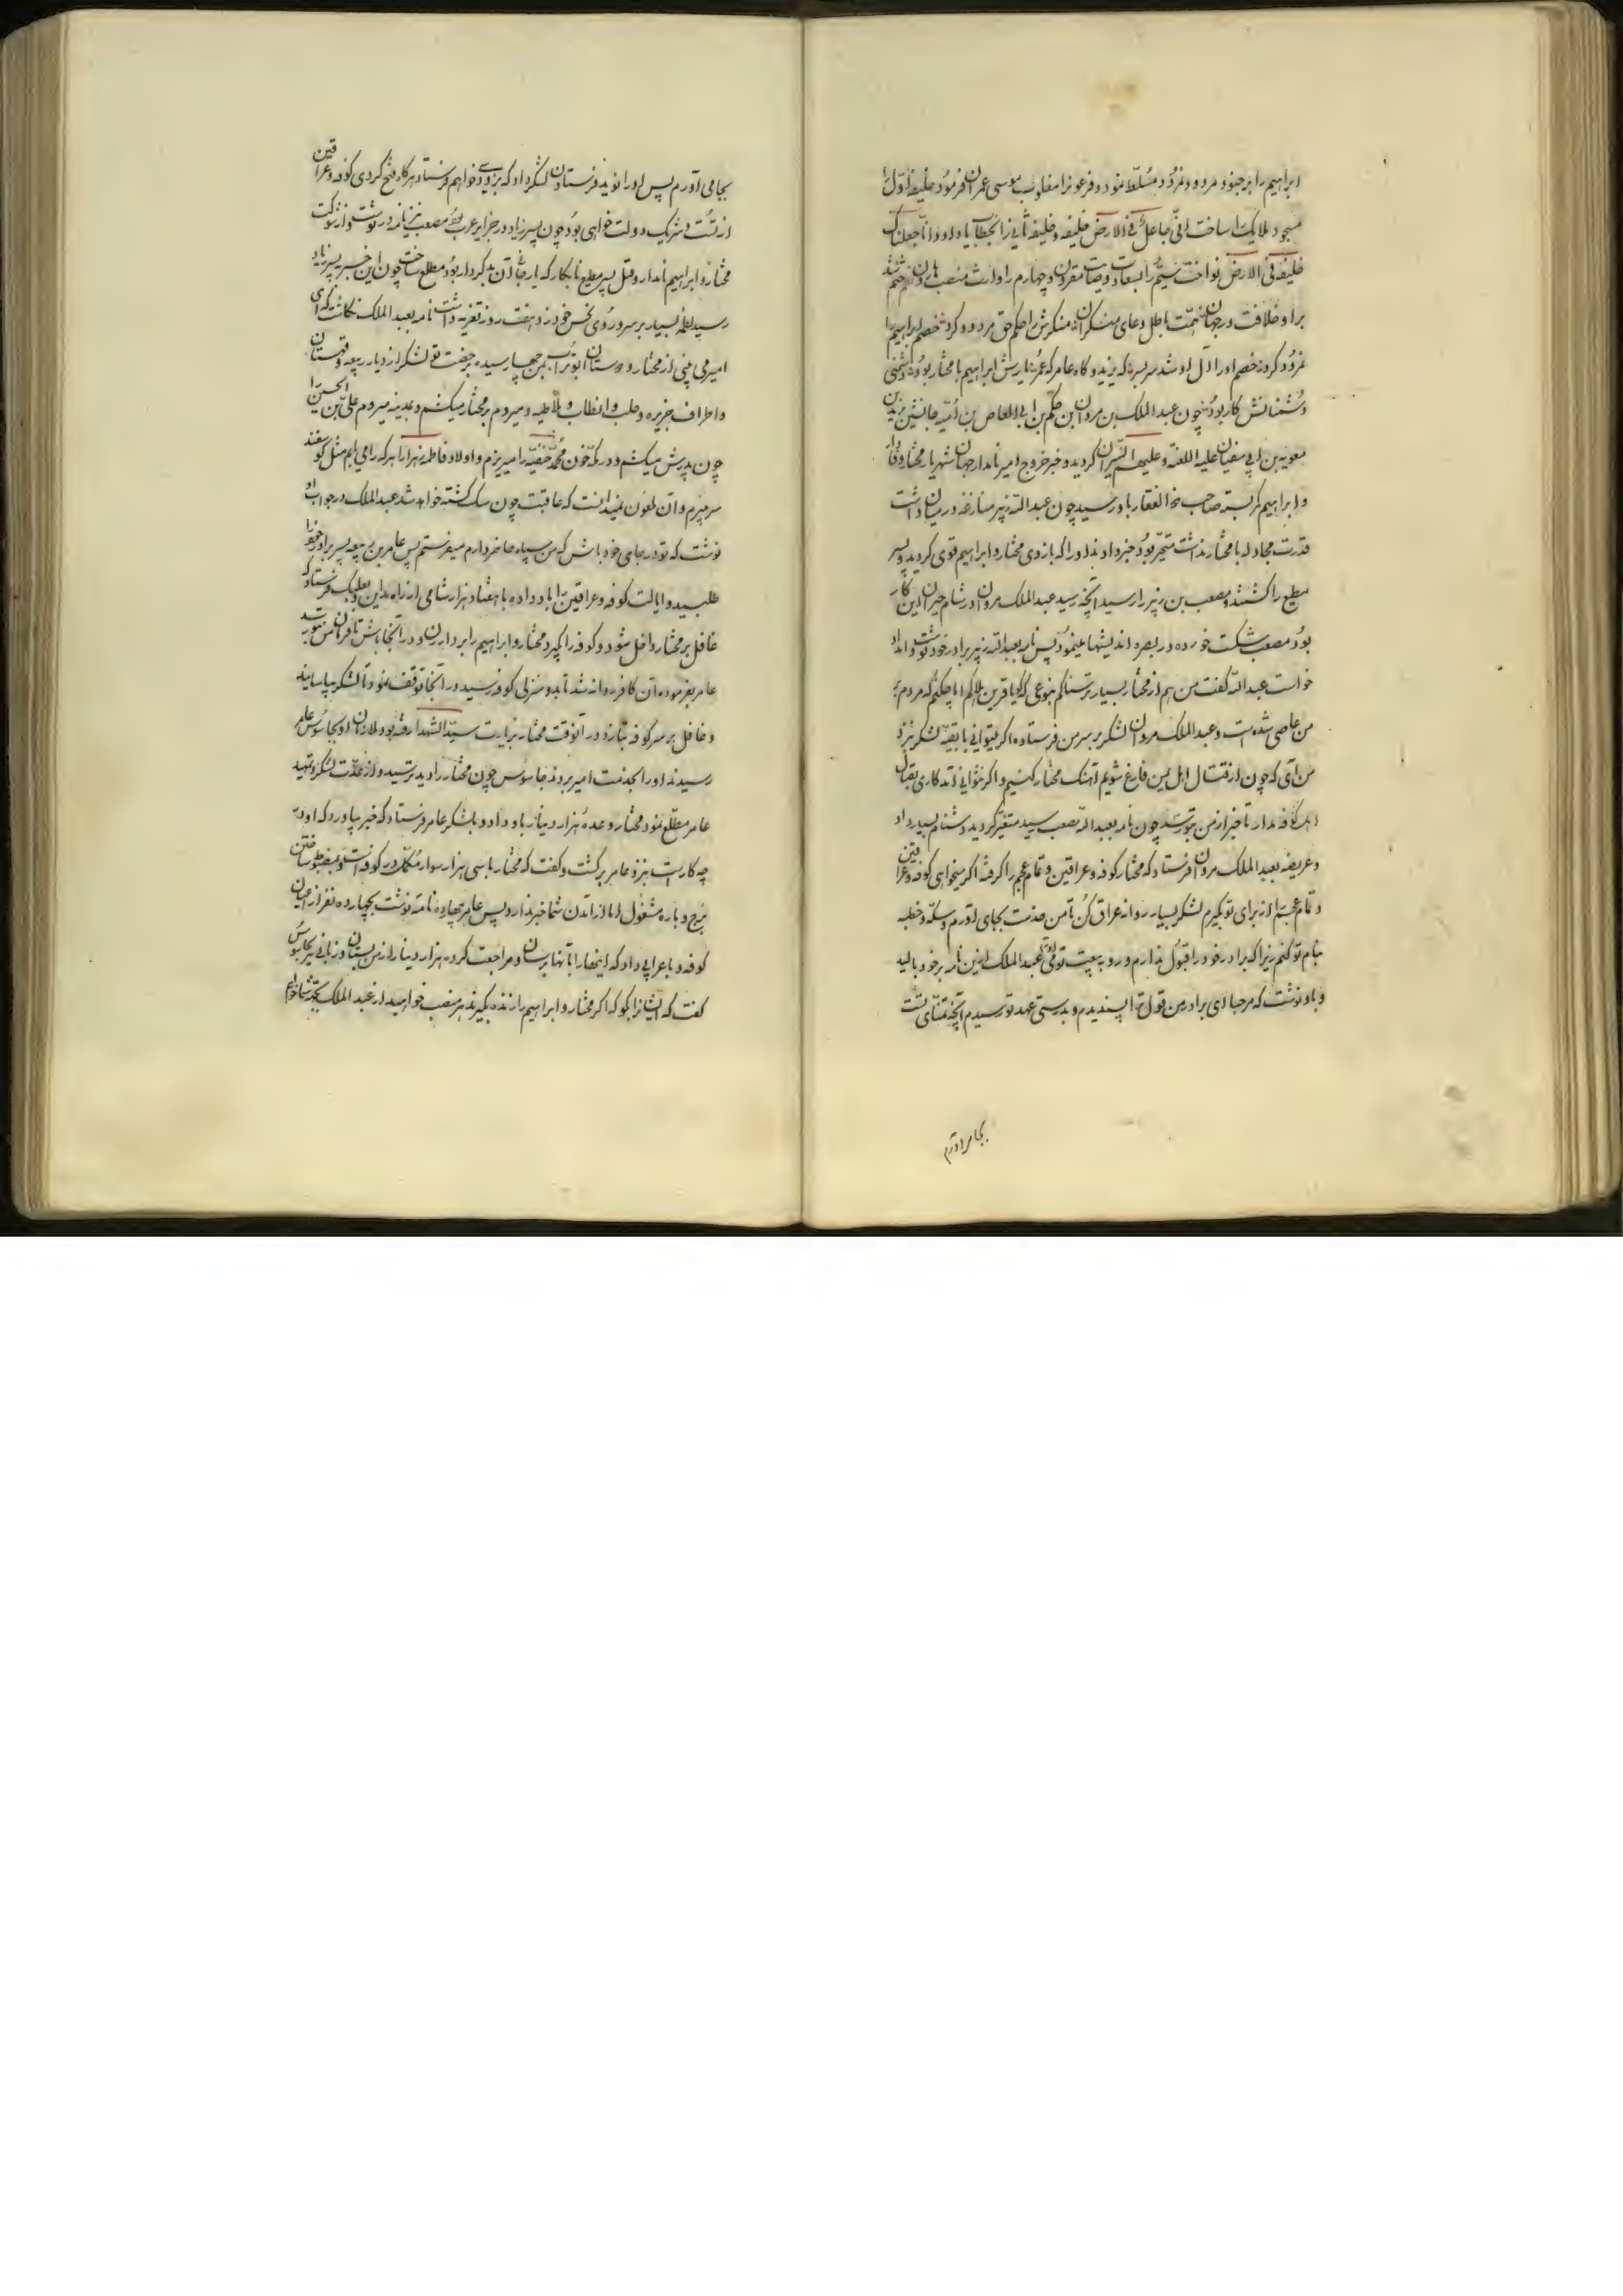 ابراهیم را بر جنود مردود نمرود مسلط نمود و فرعون را مغلوب موسی عمران فرمود خلیفه اول را
مسجود ملایک ساخت انی جاعل فی الارض خلیفه و خلیفه ثانی را بخطاب یا داود انا جعلناک
خلیفة فی الارض نواخت سیم را بسعادت وصایت مقرون و چهارم را وارث منصب هارون
برا و خلافت در جهان ختمست باطل دعای منکران منکرش را حکم حق مردود کرد خصم ابراهیم را
نمرود کرد
دشمنانش کار بود چون عبد الملک بن مروان بن حکم بن ابی العاص بن امیه جانشین یزید بن
معویه بن ابی سفیان علیه اللعنه و علیهم النیران کردید و خبر خروج امیر نامدار جهان شهریار مختار
و ابراهیم کمر بسته صاحب ذو الفقار باو رسید چون عبد الله زبیر منازعه در میان داشت
قدرت مجادله با مختار نداشت متحیر بود خبر دادند او را که بازوی مختار و ابراهیم قوی کردید و پسر
مطیع را کشتند و مصعب بن زبیر را رسید آنچه رسید عبد الملک مروان در شام حیران این کار
بود مصعب شکست خورده در بصره اندیشها مینمود پس نامه بعبد الله زبیر برادر خود نوشت و امداد
خواست عبد الله کفت من هم از مختار بسیار ترسناکم بنوعی که کویا قرین هلاکم اما چکنم که مردم
من عاصی شده است و عبد الملک مروان لشکر بر سر من فرستاده اکر میتوانی با بقیه لشکر نزد
من آی که چون از قتال اهل یمن فارغ شویم آهنک مختار کنیم و اکر نتوانی آمد کاری بقتال
اهل کوفه مدار تا خبر از من بتو رسد چون نامه بعبد الله مصعب رسید متغیر کردید و دشنام بسیار داد
و عریضه بعبد الملک مروان فرستاد که مختار کوفه و عراقین و تمام عجم را کرفته اکر میخواهی کوفه و عراقین
و تمام عجم را از برای تو بکیرم لشکر بسیار روانه عراق کن تا من خدمت بجای آورم و سکه و خطبه
بنام تو کنم زیرا که برادر خود را قبول ندارم و رو به بیعت تو عبد الملک ازین نامه بر خود بالید
و باو نوشت که مرحبا ای برادر من قول ترا پسندیدم و بدرستی عهد تو رسیدم آنچه تمنای تست
بجا می آورم
بجا می آورم پس او را نوید فرستادن لشکر داد که بزودی خواهم فرستاد هر کاه فتح کردی کوفه و عراقین
از تست و شریک دولت خواهی بود چون پسر زیاد در جزایر عرب بود مصعب نیز نامه باو نوشت و از شوکت
مختار و ابراهیم نامدار و قتل پسر مطیع نابکار که یار آن بد کردار بود مطلع ساخت چون این خبر به پسر زیاد
رسید لطمه بسیار بر سر و روی نحس خود زد هفت روز تعزیه داشت نامه بعبد الملک نکاشت که ای
امیر می بینی از مختار و دوستان ابوتراب بمن چها رسیده برخصت تو لشکر از دیار ربیعه و قهستان
و اطراف جزیره و حلب و انطاب و ملاطیه و میروم بر مختار میکشم و بمدینه میروم علی بن الحسین را
چون پدرش میکشم و در مکه خون محمد حنفیه را میریزم و اولاد فاطمه زهرا را هر که را می یابم مثل کوسفند
سر میبرم و آن ملعون نمیدانست که عاقبت چون سک کشته خواهد شد عبد الملک در جواب او
نوشت که تو در جای خود باش که من سپاه حاضر دارم میفرستم پس عامر بن ربیعه پسر برادر خود را
طلبید و ایالت کوفه و عراقین را باو داده با هفتاد هزار شامی از راه مداین و بعلبک فرستاد که
غافل بر مختار داخل شود و کوفه را بکیرد مختار و ابراهیم را بردارن و در آنجا باش تا فرمان من بتو رسد
عامر بفرموده آن کافر روانه شد تا بدو منزلی کوفه رسید در آنجا توقف نمود تا لشکر بیاسایند
و غافل بر سر کوفه بتازد در آنوقت مختار بزیارت سید الشهدا رفته بود ملازمان او بجاسوس عامر
رسیدند او را بخدمت امیر بردند جاسوس چون مختار را دید ترسید و از عدت لشکر و تهیه
عامر مطلع نمود مختار وعدهٔ هزار دینار باو داد و بلشکر عامر فرستاد که خبر بیاورد که او در
چه کار است بنزد عامر برکشت و کفت که مختار با سی هزار سوار مکمل در کوفه است و بمضبوط ساختن
برج و باره مشغول اما از آمدن شما خبر ندارد پس عامر چهارده نامه نوشت بچهارده نفر از اعیان
کوفه و باعرابی داد که اینها را بآنها برسان و مراجعت کرده هزار دینار از من بستان و زبانی نیز بجاسوس
کفت که ایشانرا بکو که اکر مختار و ابراهیم را زنده بکیرند هر منصب خواهید از عبد الملک بجهة شما خواهم